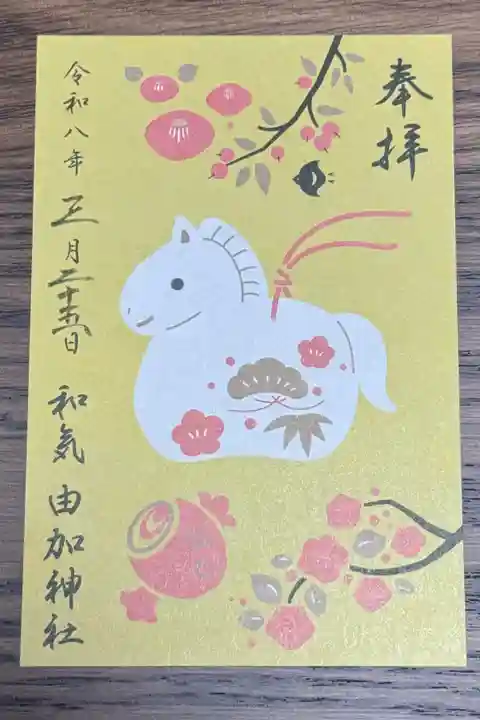 奉拝
令和八年 三月二十五日 和気 由加神社